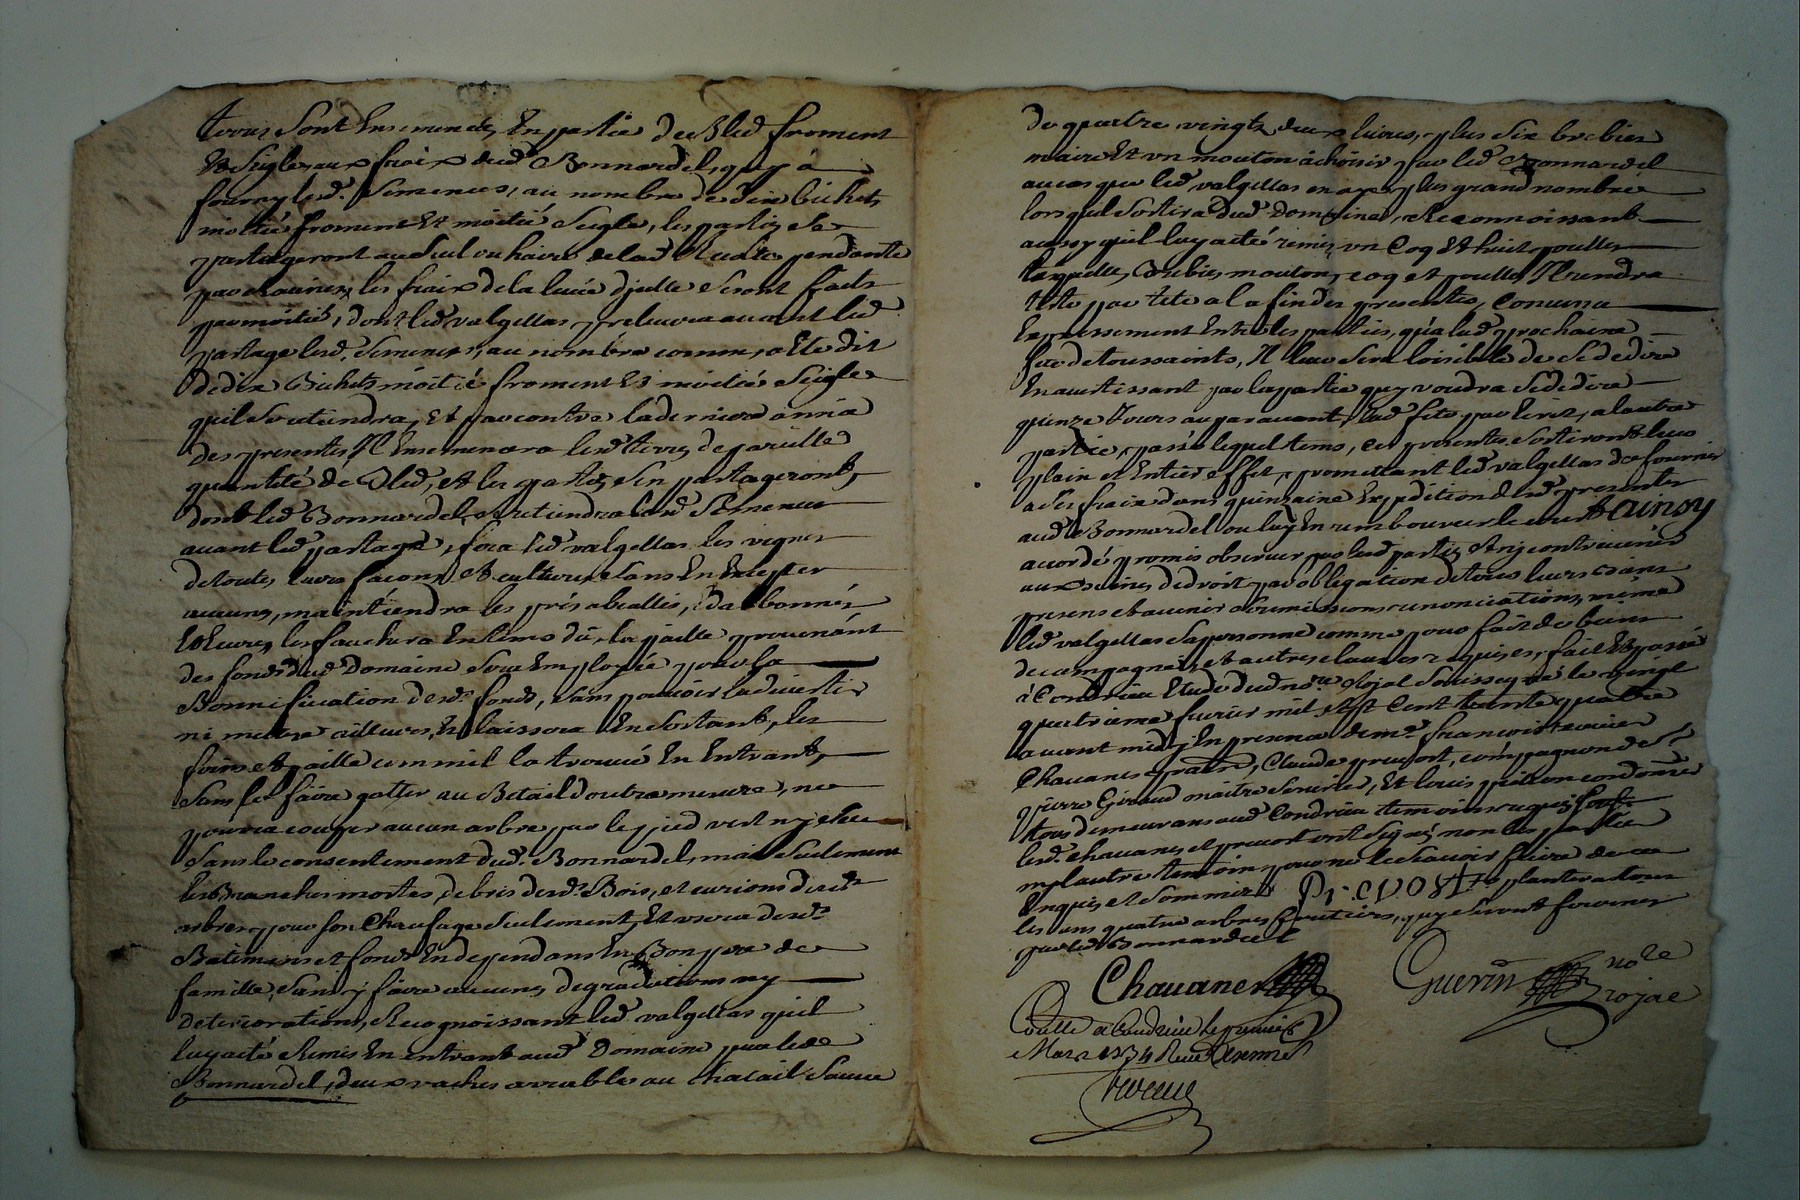 terres sont Ensemencées En partie de Bled froment
Et Seigle, aux fraix dud. Bonnardel, quy à
fourny lesd. Semences, au nombre de dix bichets
moitié froment Et moitié Seigle, les parties Se
partageront au Seul ou haire de lad. pendante
par les fraix de la levée d'jcelle Seront faits
par moitié, dont led valgellas prelevera avant led
partage lesd. Semences, au nombre comme a Eté dit
de dix Bichets moitié froment Et moitié Seigle
quil Soutiendra, Et par contre la derniere année
des presentes, Il Ensemencera lesd terres de pareille
quantité de Bled, et les parties S'en partageront,
dont led Bonnardel, retiendra lesd Semences
avant led partage, fera led valgellas les vignes
de toutes leurs façons et cultures sans En Excepter
aucunes, maintiendra les prés abeallis, Et a bonnes
Eseures, les fauchera En tems dû, la paille provenant
des fonds dud Domaine Sera Employée pour la
Bonnification desd. fonds, sans pouvoir la divertir
ni mettre ailleurs, En laissera En Sortant, les
foins et paille comm'il la trouvé En Entrant,
Sans les faire gatter au Betail d'outre mesure, ne
pourra couper aucun arbre par le pied vert ny sec
Sans le consentement dud. Bonnardel, mais Seulement
les Branches mortes, debris desd. Bois, et curions desd.
arbres pour son Chaufage Seulement, Et usera desd.
Batimens et fonds En dependans En Bon pere de
famille, Sans y faire aucunes degradations ny
deteriorations, Recognoissant led valgellas quil
luy a eté Remis En entrant aud Domaine par led
Bonnardel, deux vaches arrables au Chatail Sauve
de quatre vingts deux livres, plus Six brebies
maires Et un mouton à choisir par led Bonnardel
au cas que led valgellas en aye plus grand nombre
lors quil Sortira dud Domaine, Reconnoissant
aussy quil luy a eté remis un Coq Et huit poulles
lesquelles Brebis, mouton, coq et poulles Il rendra
tete par tete a la fin des presentes, Convenu
Expressement Entre les parties, qu'a lad prochaine
fete de toussaints, Il leur Sera loisible de Se dedire
En avertissant par la partie quy voudra Se dedire
quinze Jours auparavant lad fete par Ecrit, a l'autre
partie, passé lequel tems, ces presentes Sortiront leur
plain et Entier effet, promettant led valgellas de fournir
a Ses fraix dans quinzaine Expedition desd presentes
aud Bonnardel ou luy En rembourcer le Et ainsy
accordé promis observer par lesd parties Et n'y contrevenir
aux peines de droit par obligation de tous leurs biens
presens et avenir soumissions renonciations, même
led valgellas Sa personne comme pour fait de biens
de campagne, et autres clauses requises, fait Et passé
à Condrieu Etude dud nore. Rojal Soussigné le vingt
quatrieme fevrier mil Sept Cent trente quatre
avant midy En presence de mre. francois xavier
Chavanes, Claude prevost, compagnon
Pierre Giraud maitre Serurier, Et louis cordonier
tous demeurans aud Condrieu temoins requis Sont
lesd. chavanes et prevost ont Signé, non les parties
ny l'autre temoin pour ne le Scavoir faire de ce
Enquis et Sommés plantera tous
les ans quatre arbres fruitiers, quy Seront fournis
par led Bonnardel
Prevost
Chavanes
Guerin nore
rojal
Conllé a Condrieu le premier
Mars 1734 Receu